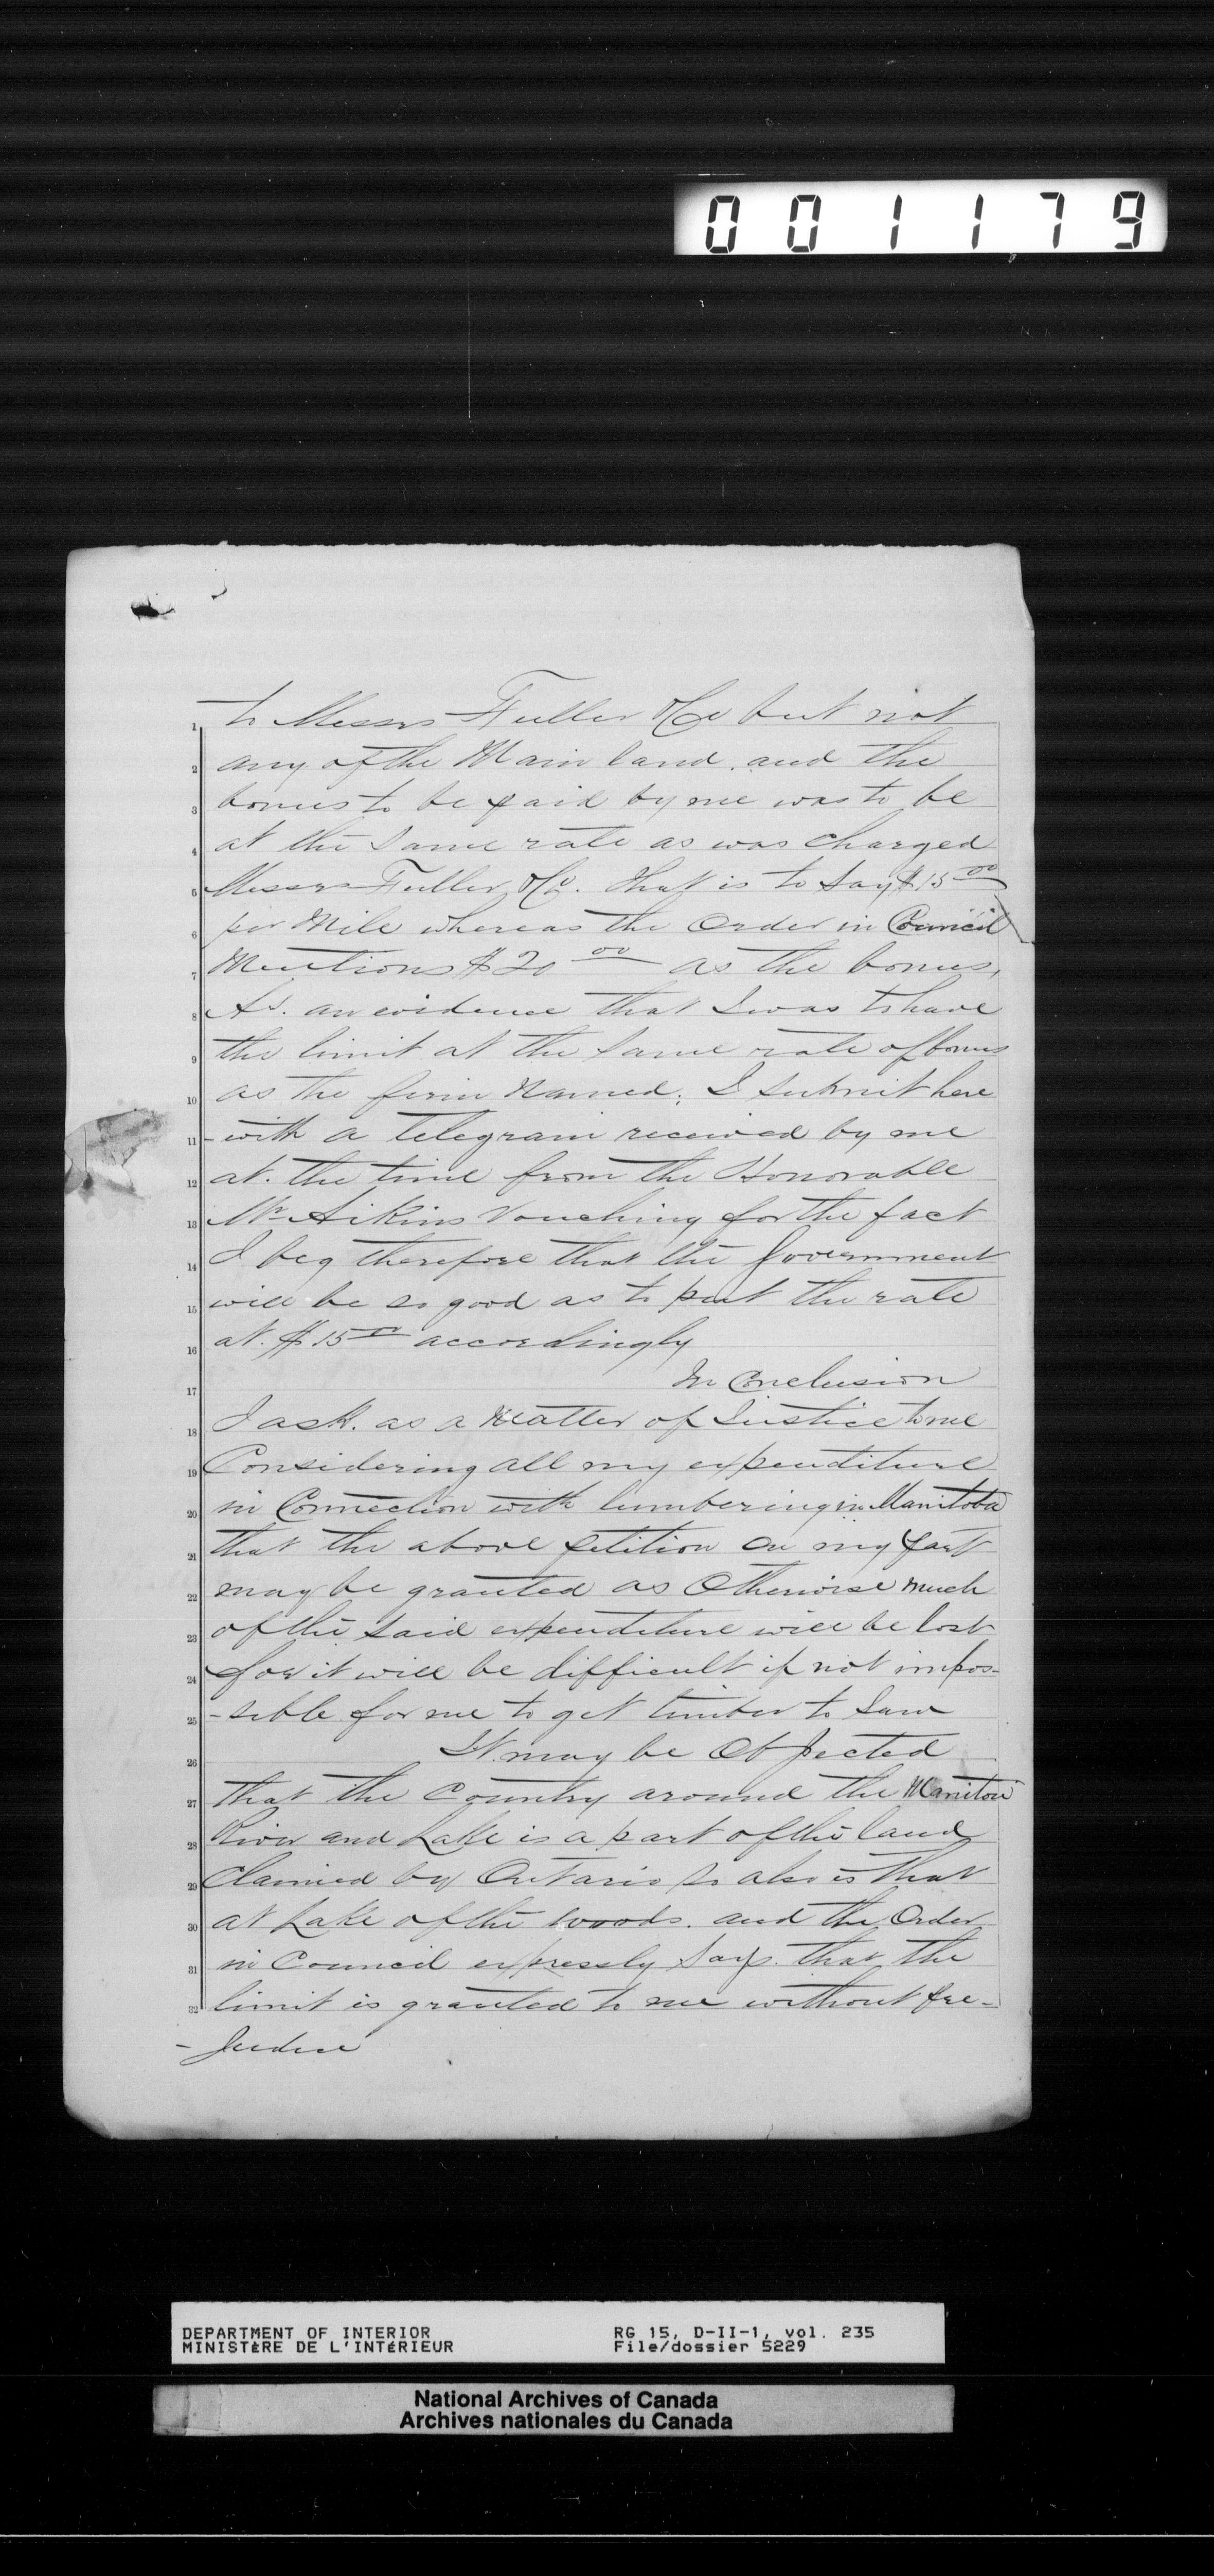 001179
to Messrs Fuller & Co but not
1
any of the Main land. and the
2
bonus to be paid by me was to be
3
at the same rate as was Charged
4
Messrs Fuller & Co. that is to say $15 00
5
per Mile whereas the Order in Council
6
Mentions $20 00 as the bonus,
7
As. an evidence that I was to have
8
the limit at the same rate of bonus
9
as the firm Named. I submit here
10
-with a Telegram received by me
11
at. the time from the Honorable
12
Mr Aikins Vouching for the fact
13
I beg therefore that the Government
14
will be so good as to put the rate
15
at. $15 00 accordingly
16
In Conclusion
17
I ask. as a Matter of Justice to me
18
Considering all my expenditure
19
in Connection with lumbering in Manitoba
20
that the above petition on my part
21
may be granted as Otherwise much
22
of the said expenditure will be lost
23
for it will be difficult if not impos-
24
-sible for me to get timber to saw
25
It may be Objected
26
that the Country around the Manitou
27
River and Lake is a part of the land
28
Claimed by Ontario so also is that
29
at Lake of the Woods. and the Order
30
in Council expressly says. that the
31
limit is granted to me without pre-
32
-judice
DEPARTMENT OF INTERIOR
MINISTÈRE DE L'INTÉRIEUR
RG 15, D-II-1, vol. 235
File/dossier 5229
National Archives of Canada
Archives nationales du Canada